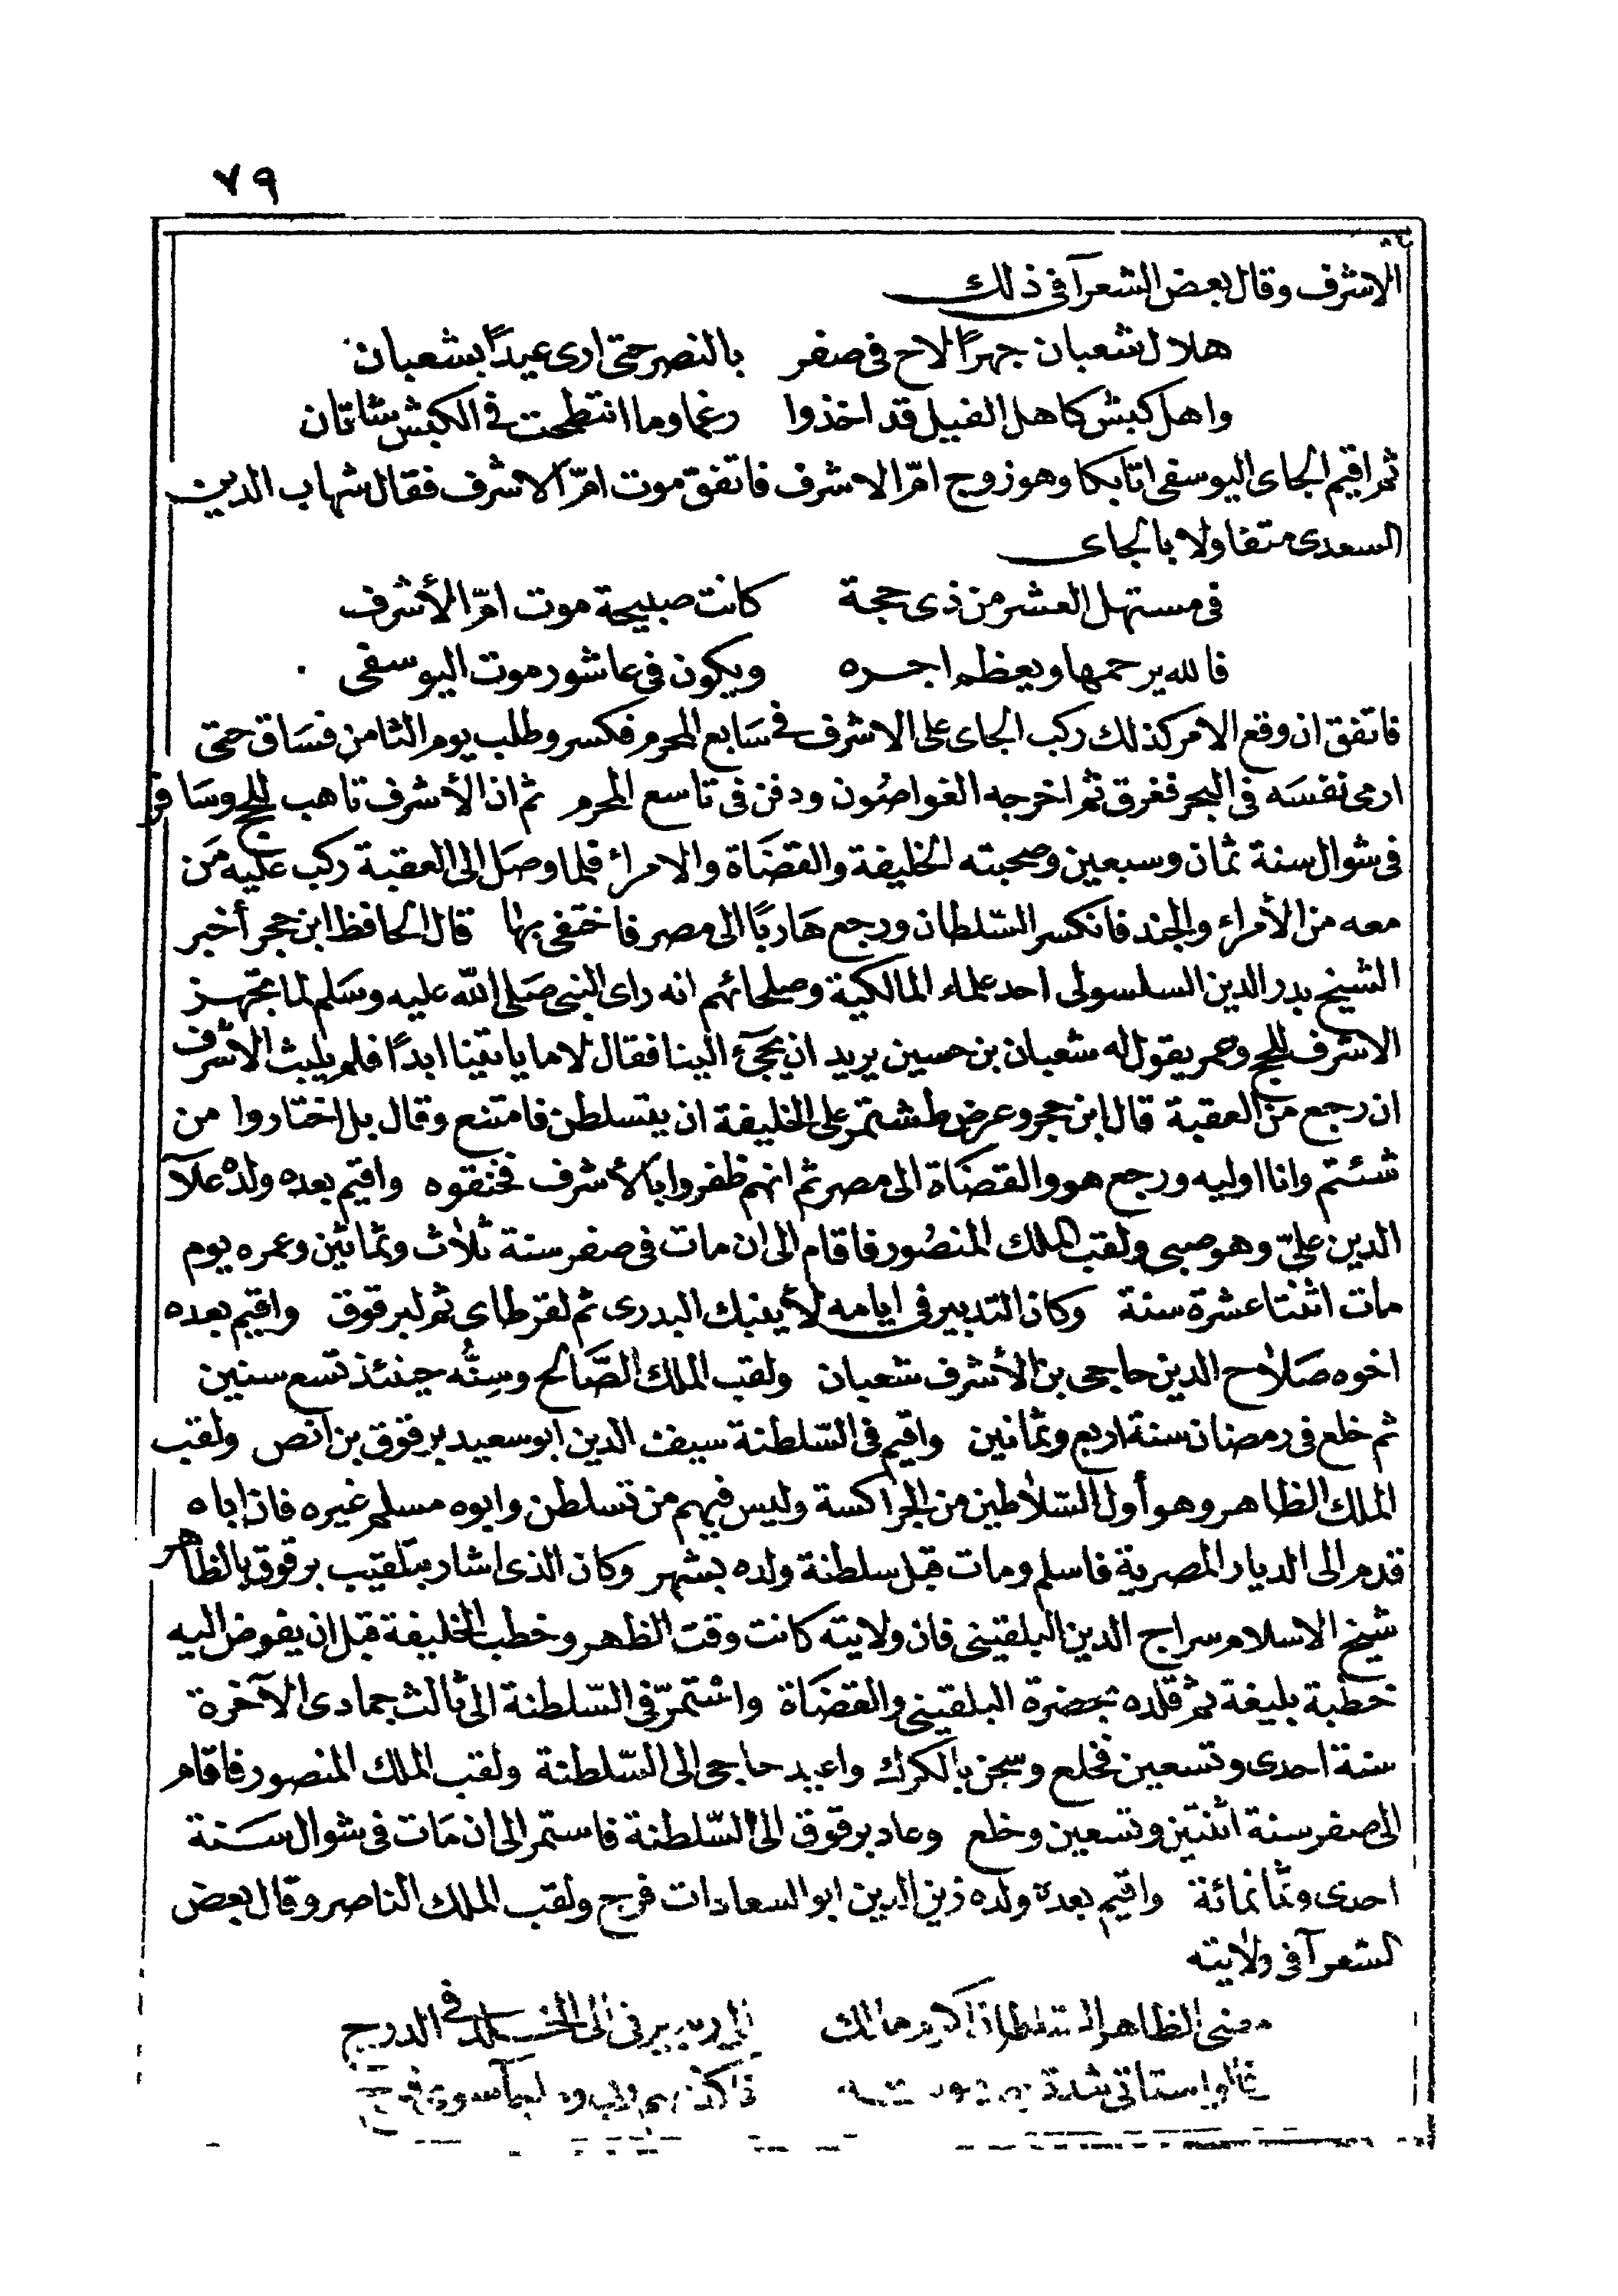 ٧٩
الاشرف وقال بعض الشعرآ فى ذلك
هلال شعبان جهرًا لاح فى صفر بالنصر حتى ارى عيدًا بشعبان
واهل كبش كاهل الفيل قد اخذوا رغما وما انتطحت فى الكبش شاتان
ثم اقيم الجاى اليوسفى اتابكا وهو زوج امّ الاشرف فاتفق موت امّ الاشرف فقال شهاب الدين
السعدى متفاولا بالجاى
فى مستهل العشر من ذى حجة كانت صبيحة موت امّ الأشرف
فالله يرحمها ويعظم اجره ويكون فى عاشور موت اليوسفى
فاتفق ان وقع الامر كذلك ركب الجاى على الاشرف فى سَابع المحرم فكسر وطلب يوم الثامن فسَاق حتى
ارمى نفسَه فى البحر فغرق ثم اخرجه الغواصُون ودفن فى تاسع المحرم ثم ان الأشرف تاهب للحج وسَافر
فى شوال سنة ثمان وسبعين وصحبته الخليفة والقضَاة والامراء فلما وصَل الى العقبة ركب عليه مَن
معه من الأمراء والجند فانكسر السّلطان ورجع هَاربًا الى مصر فاختفى بها قال الحافظ ابن حجر أخبر
الشيخ بدر الدين السلسولى احد علماء المالكية وصلحائهم انه راى النبى صَلى الله عليه وسَلم لما تجهز
الاشرف للحج وعمر يقول له شعبان بن حسين يريد ان يجئ الينا فقال لا ما ياتينا ابدًا فلم يلبث الاشرف
ان رجع من العقبة قال ابن حجر وعرض طشتمر على الخليفة ان يتسلطن فامتنع وقال بل اختاروا من
شئتم وانا اوليه ورجع هو والقضَاة الى مصر ثم انهم ظفروا بالأشرف فخنقوه واقيم بعده ولدْه علآ
الدين علىّ وهو صبى ولقب الملك المنصُور فاقام الى ان مات فى صفر سنة ثلاث وثمانين وعمره يوم
مات اثنتا عشرة سنة وكان التدبير فى ايامه لأينبك البدرى ثم لقرطاى ثم لبرقوق واقيم بعده
اخوه صَلاح الدين حاجى بن الأشرف شعبان ولقب الملك الصَّالح وسِنُّه حينئذ تسع سنين
ثم خلع فى رمضان سنة اربع وثمانين واقيم فى السّلطنة سيف الدين ابو سعيد برقوق بن انص ولقب
الملك الظاهر وهو أول السّلاطين من الجراكسة وليس فيهم من تسلطن وابوه مسلم غيره فان اباه
قدم الى الديار المصرية فاسلم ومات قبل سلطنة ولده بشهر وكان الذى اشار بتلقيب برقوق بالظاهر
شيخ الاسلام سراج الدين البلقينى فان ولايته كانت وقت الظهر وخطب الخليفة قبل ان يفوض اليه
خطبة بليغة ثم قلده بحضرة البلقينى والقضَاة واستمرّ فى السّلطنة الى ثالث جمادى الآخرة
سنة احدى وتسعين فخلع وسجن بالكرك واعيد حاجى الى السّلطنة ولقب الملك المنصور فاقام
الى صفر سنة اثنتين وتسعين وخلع وعاد برقوق الى السّلطنة فاستمر الى ان مَات فى شوال سَنة
احدى وثمانمائة واقيم بعده ولده زين الدين ابو السعادات فرج ولقب الملك الناصر وقال بعض
الشعرآ فى ولايته
مضى الظاهر السلطان اكرم مالك الى ربه يرقى الى الخلد فى الدرج
وقالوا ستاتى شدة